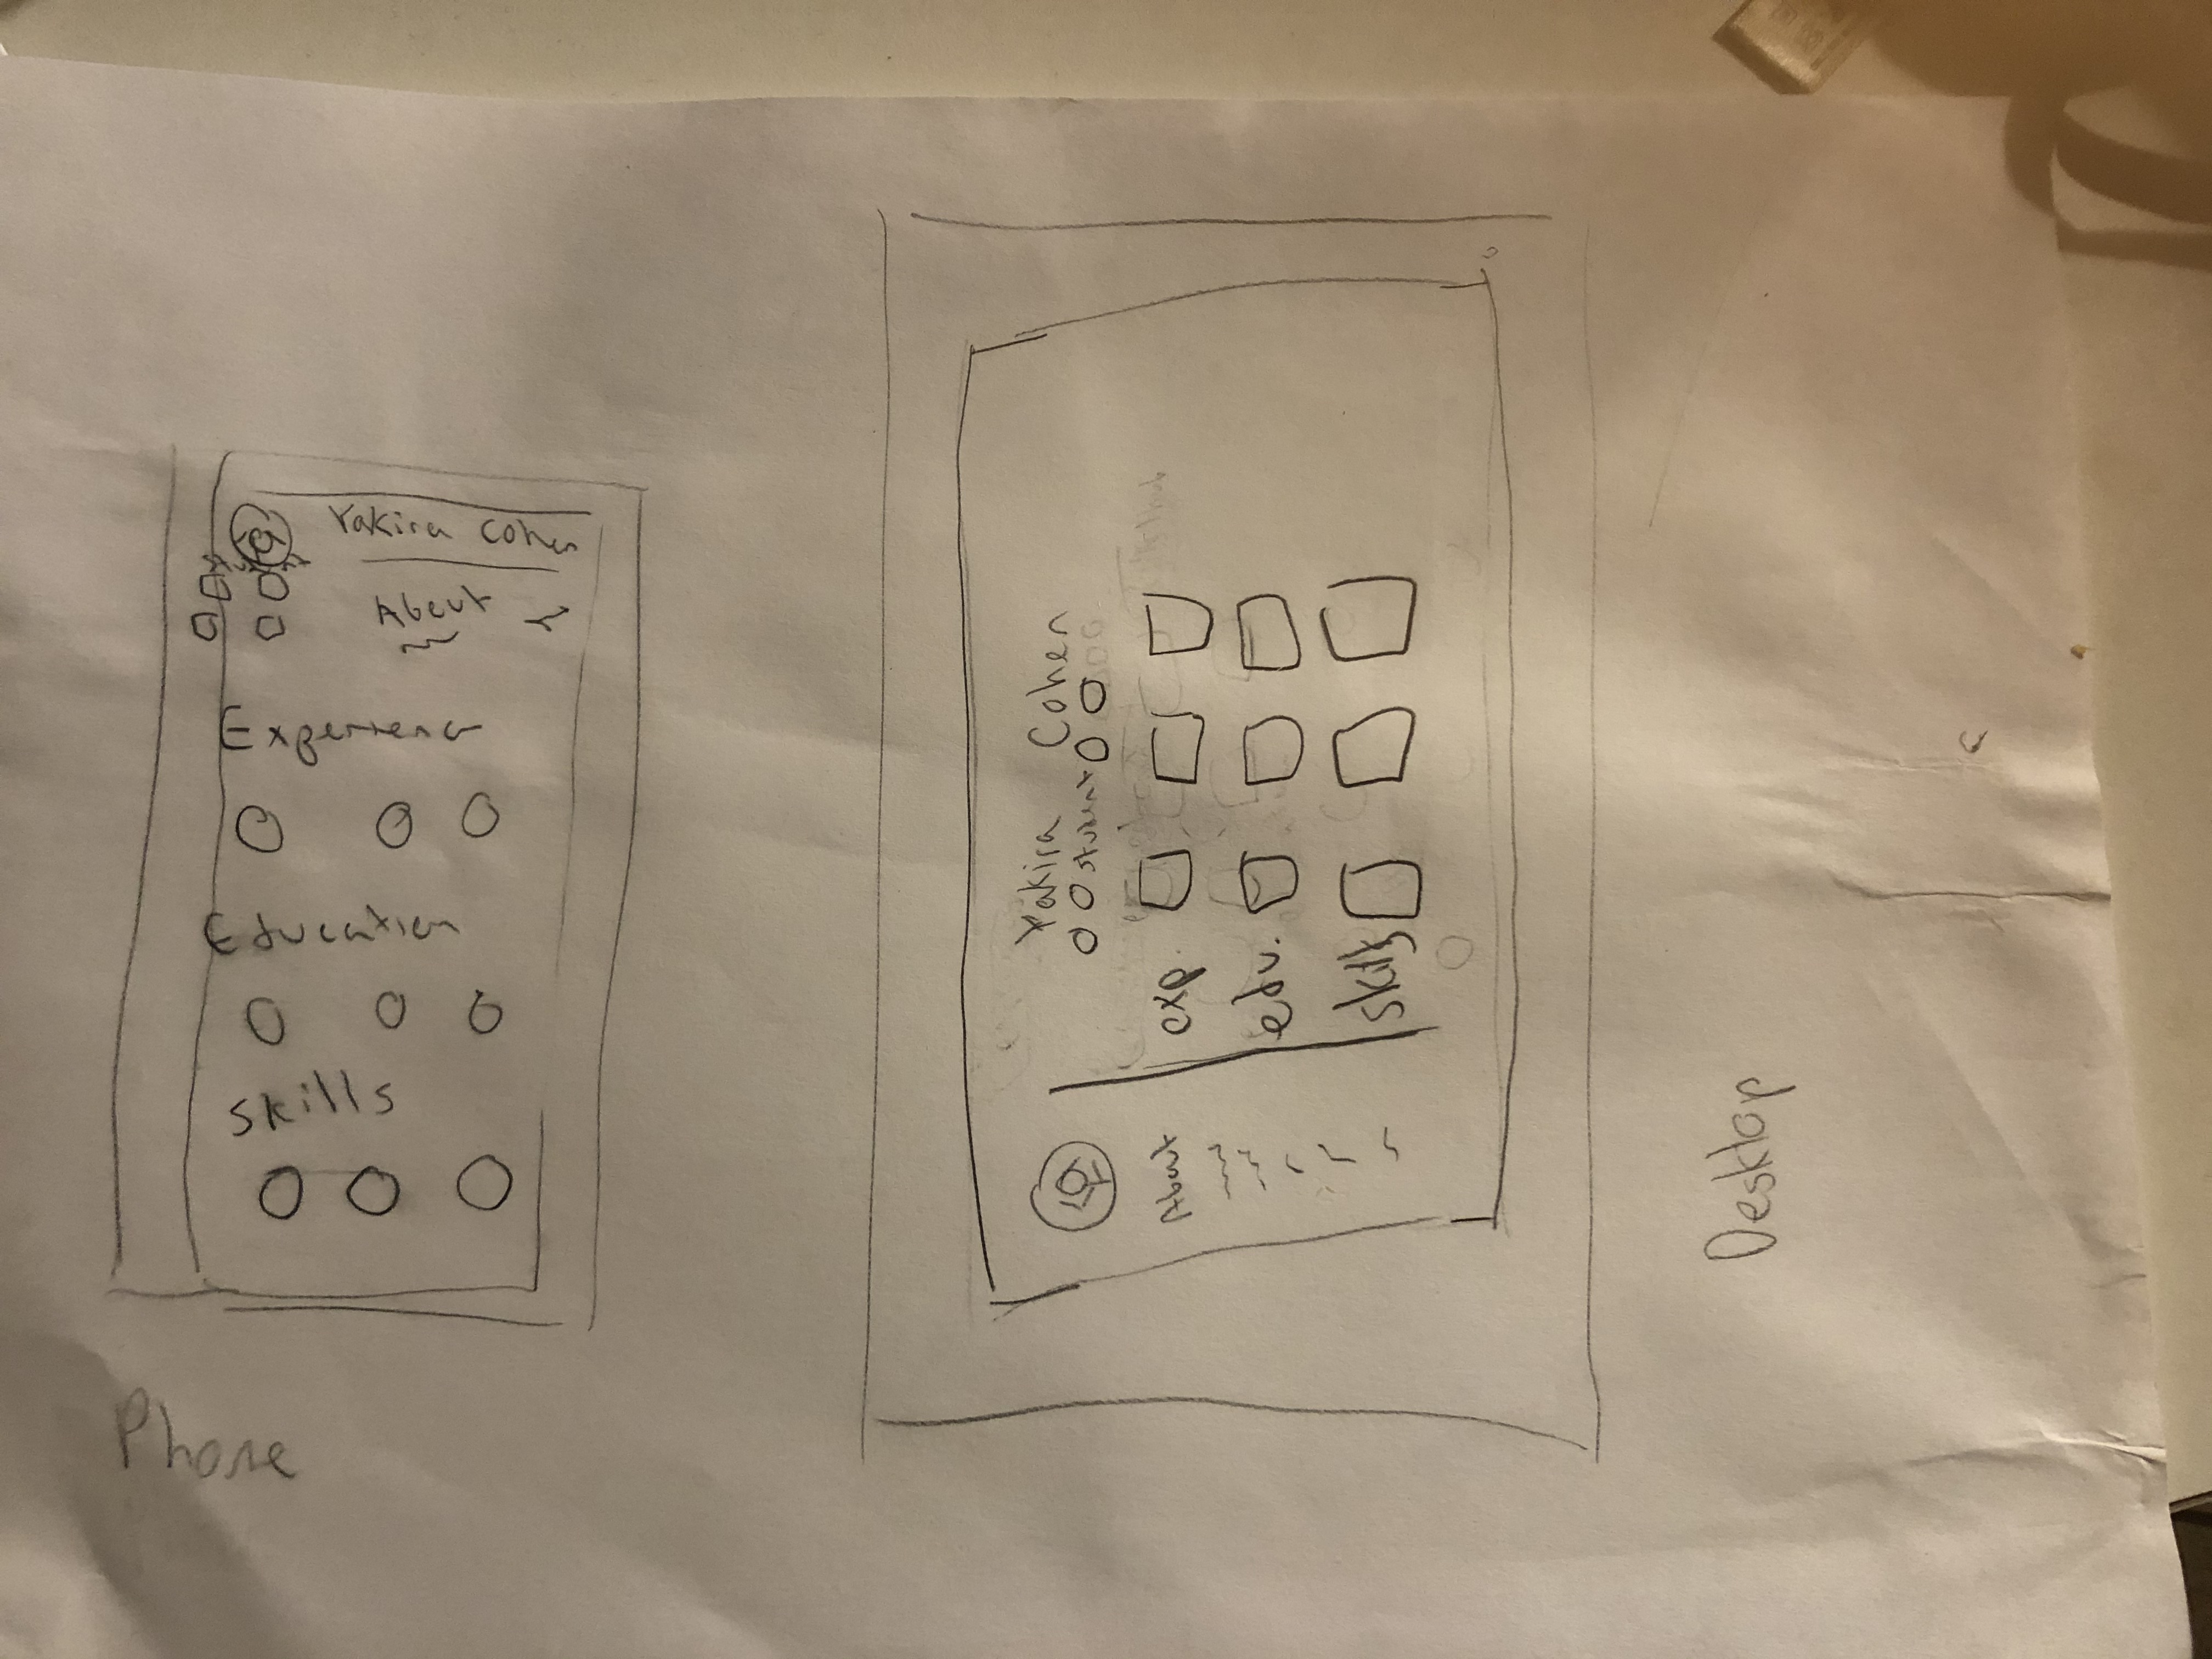 Phone
Yakira Cohen
About
Experience
Education
Skills
Yakira Cohen
student
About
exp.
edu.
skills
Desktop